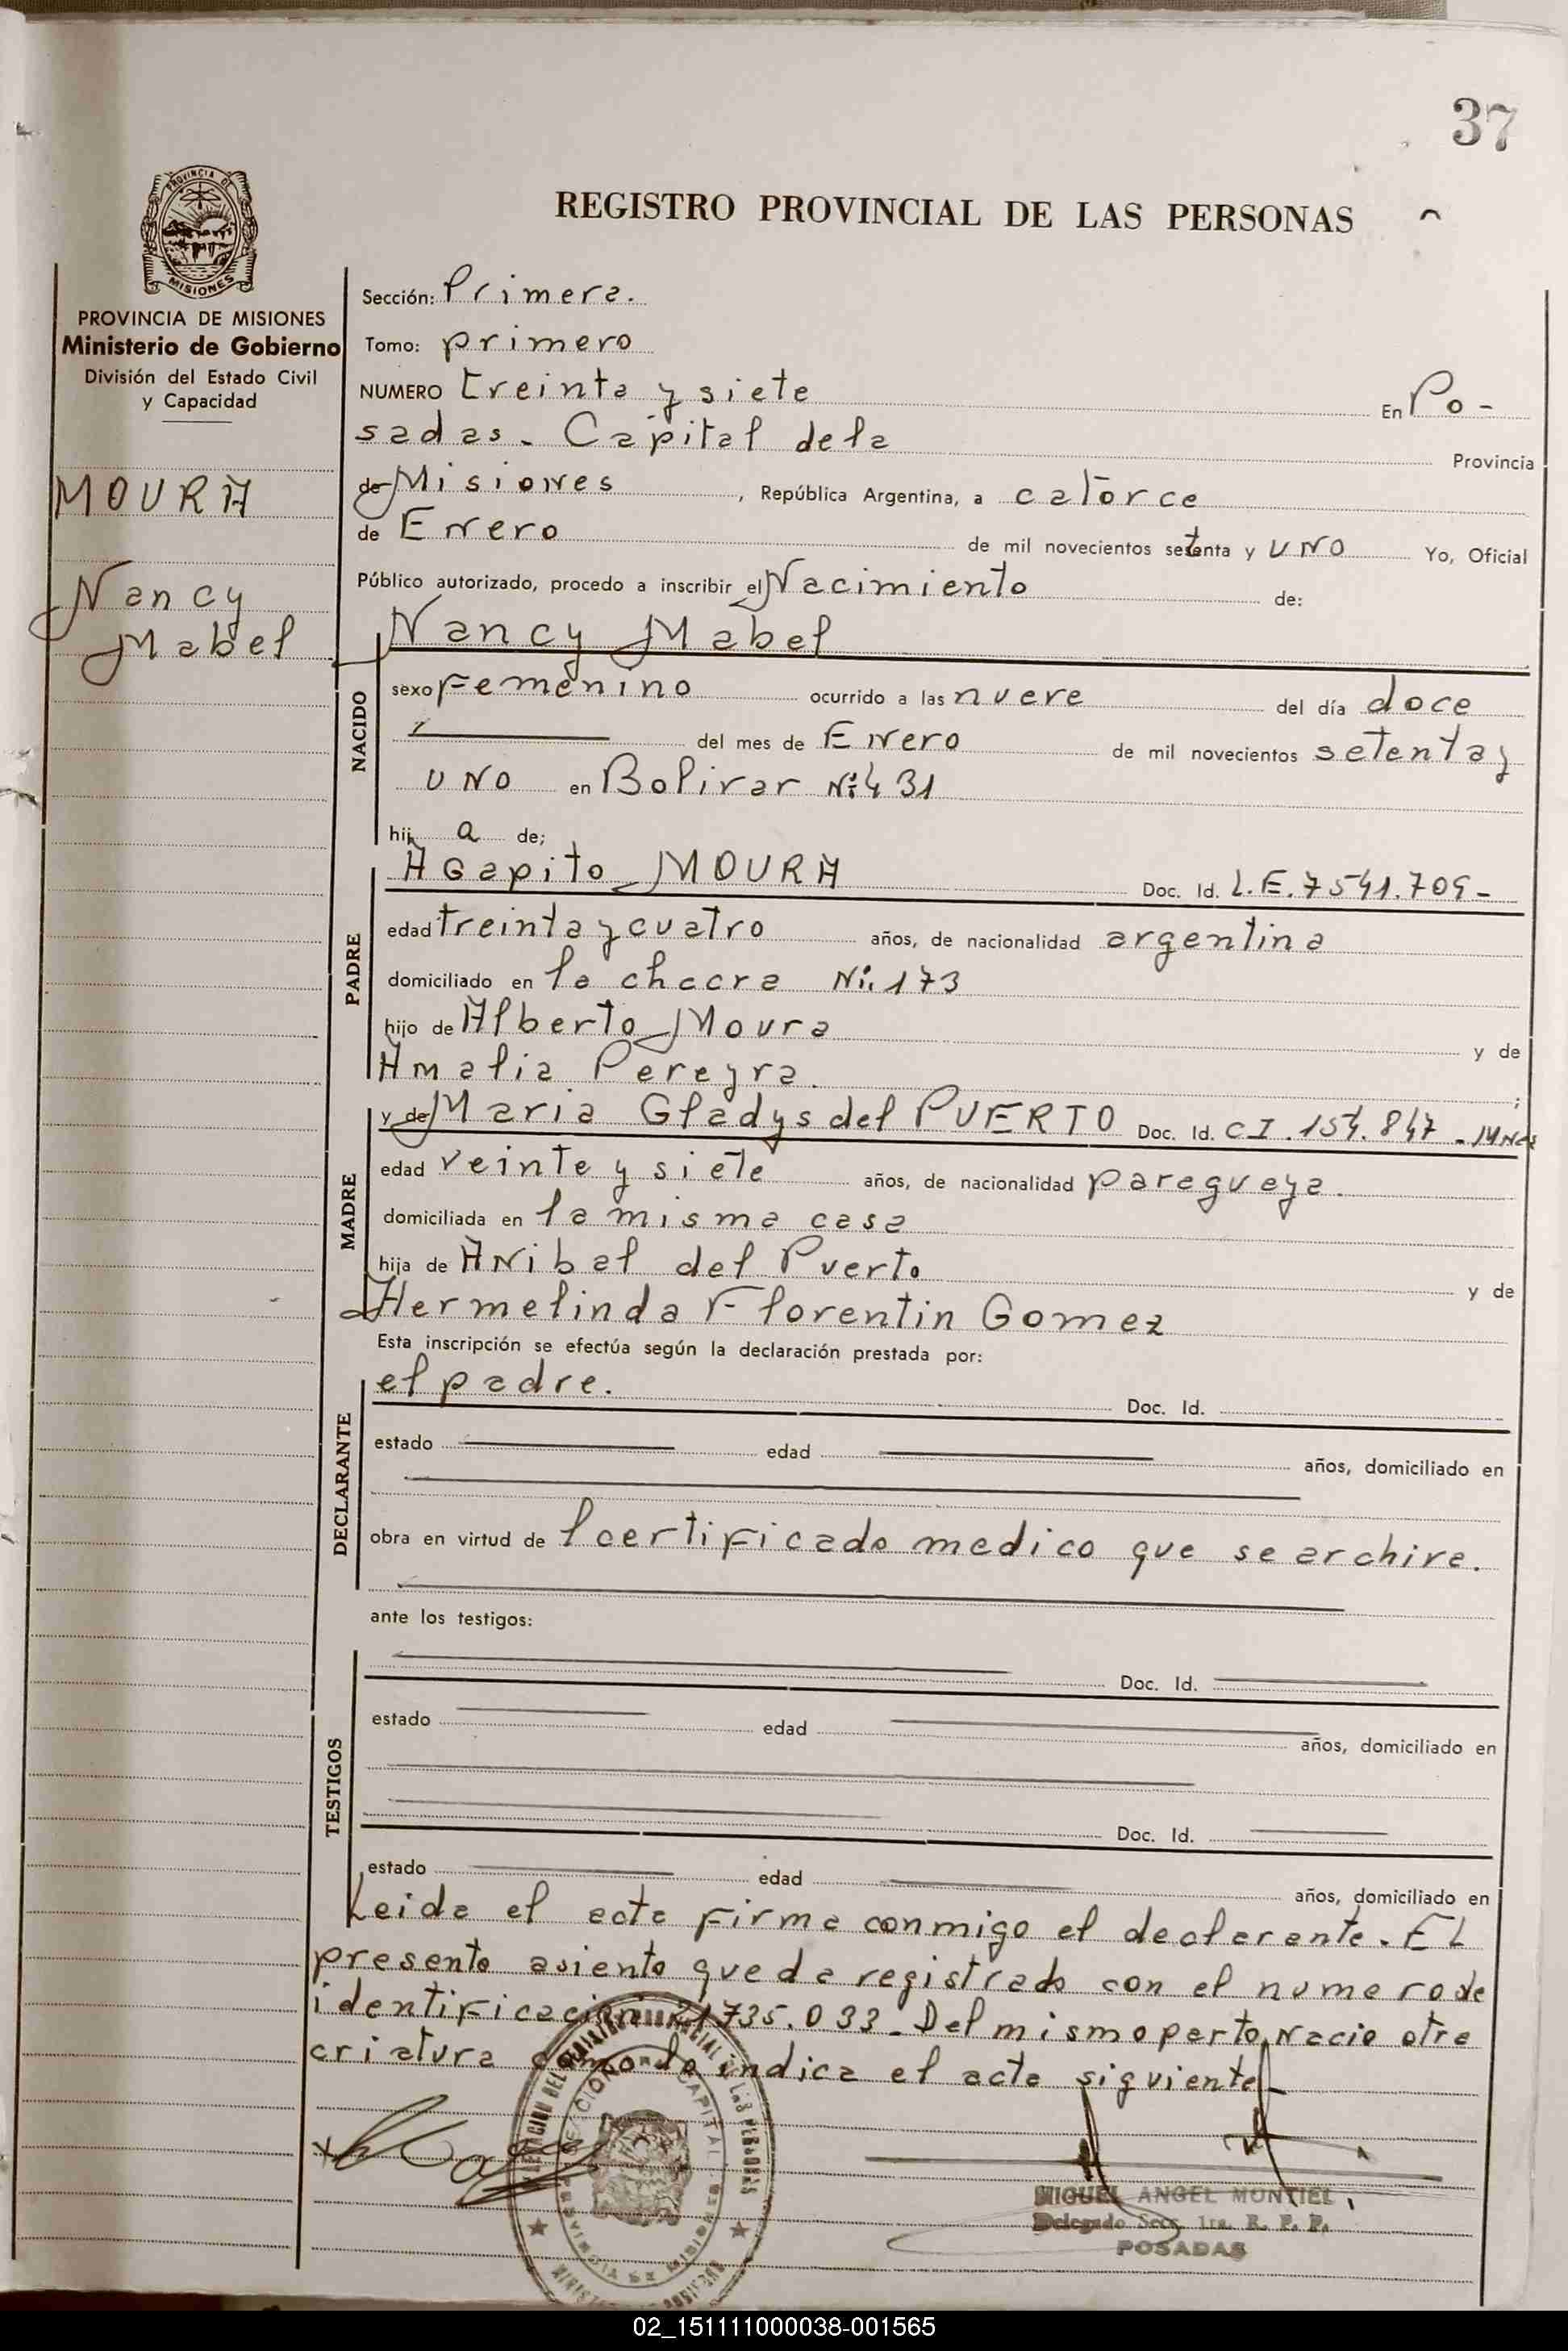 37
PROVINCIA DE
MISIONES
REGISTRO PROVINCIAL DE LAS PERSONAS
PROVINCIA DE MISIONES
Ministerio de Gobierno
División del Estado Civil
y Capacidad
MOURA
Nancy
Mabel
Sección: Primera.
Tomo: primero
NUMERO treinta y siete En Po-
sadas. Capital de la Provincia
de Misiones, República Argentina, a catorce
de Enero de mil novecientos setenta y UNO Yo, Oficial
Público autorizado, procedo a inscribir el Nacimiento de:
Nancy Mabel
NACIDO
sexo Femenino ocurrido a las nueve del día doce
del mes de Enero de mil novecientos setenta y
UNO en Bolivar Nº 431
hij a de;
PADRE
Agapito MOURA Doc. Id. L.E. 7541.709-
edad treinta y cuatro años, de nacionalidad argentina
domiciliado en la chacra Nº 173
hijo de Alberto Moura y de
Amalia Pereyra. ;
MADRE
y de Maria Gladys del PUERTO Doc. Id. CI. 154.847 - Mnes
edad veinte y siete años, de nacionalidad paraguaya.
domiciliada en la misma casa
hija de Anibal del Puerto y de
Hermelinda Florentin Gomez
Esta inscripción se efectúa según la declaración prestada por:
DECLARANTE
el padre. Doc. Id.
estado edad años, domiciliado en
obra en virtud de l certificado medico que se archiva.
ante los testigos:
TESTIGOS
Doc. Id.
estado edad años, domiciliado en
Doc. Id.
estado edad años, domiciliado en
Leida el acta firma conmigo el declarante. EL
presente asiento queda registrado con el numero de
identificación 21735.033. Del mismo parto, nacio otra
criatura como lo indica el acta siguiente-
MIGUEL ANGEL MONTIEL
Delegado Secc. 1ra. R. P. P.
POSADAS
02_151111000038-001565